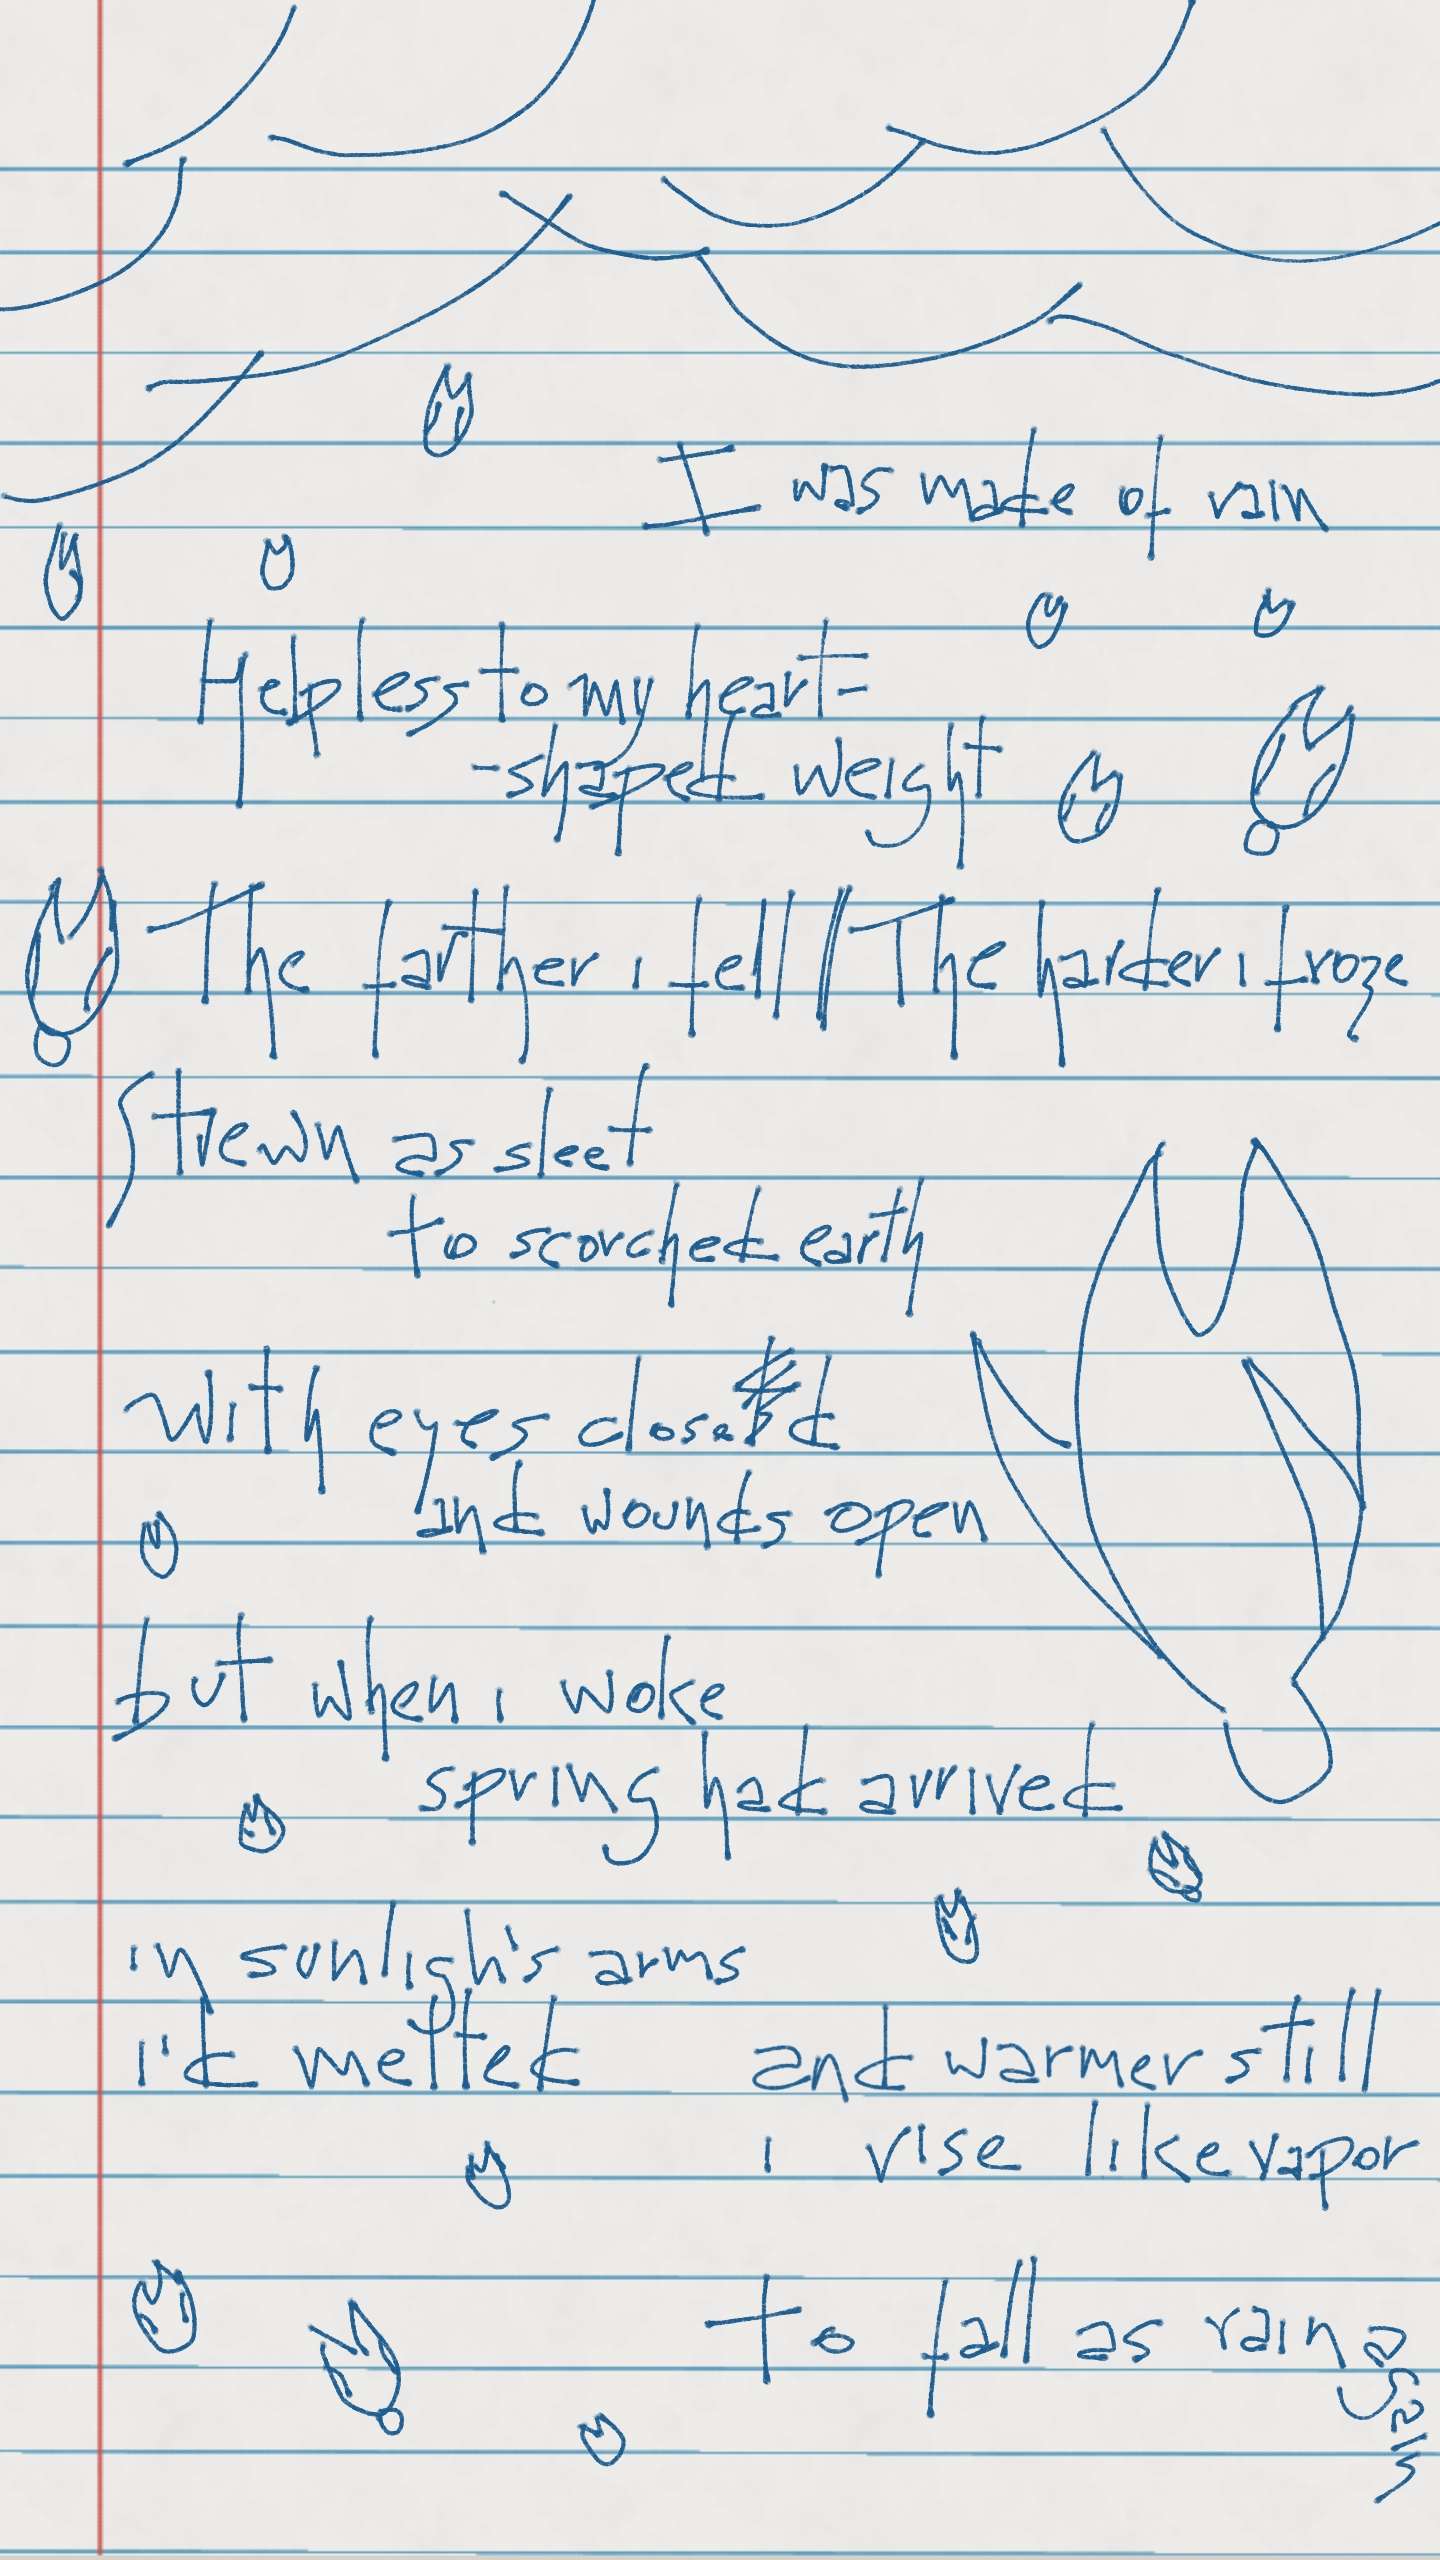 I was made of rain
Helpless to my heart-
-shaped weight
The farther i fell // The harder i froze
Strewn as sleet
to scorched earth
with eyes closed
and wounds open
but when i woke
spring had arrived
in sunligh's arms
i'd melted and warmer still
i rise like vapor
to fall as rain again